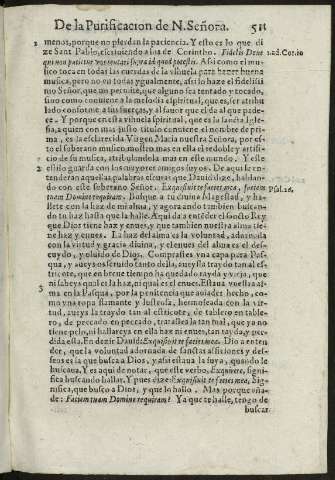 De la Purificacion de N. Señora. 511
menos, porque no pierdan la paciencia. Y esto es lo que di
ze Sant Pablo, escriuiendo a los de Corintho. Fidelis Deus 1.ad.Cor.10
qui non patietur vos tentari supra id quod potestis. Assi como el mu
sico toca en todas las cuerdas de la vihuela para hazer buena
musica, pero no en todas ygualmente, assi lo haze el fidelissi
mo Señor, que, un permite, que alguno sea tentado y tocado,
sino como conuiene a la melodia spiritual, que es, ser atribu
lado conforme a sus fuerças, y al fauor que el da al que pade
ce. Y en esta vihuela y musica spiritual, que es la sancta Igle
sia, a quien con mas justo titulo conuiene el nombre de pri
ma, es la esclarecida Virgen Maria nuestra Señora, por es
to el soberano musico mostro mas en ella el dedo, y artifi
cio de su musica, atribulandola mas en este mundo. Y este
estilo guarda con los muy otros amigos suyos. De aqui se en
tenderan aquellas palabras en que dize Dauid, hablan
do con este soberano Señor. Exquisiuit te facies mea, faciem Psal.26.
tuam Domine requiram. Busque a tu diuina Magestad, y ha
llete con la haz de mi alma, y agora ando tambien buscan-
do tu haz hasta que la halle. Aqui da a entẽder el sancto Rey
que Dios tiene haz y enues, y que tambien nuestra alma tie
ne haz y enues. La haz del alma es la voluntad, adornada
con la virtud y gracia diuina, y el enues del alma es el des-
cuydo, y oluido de Dios. Comprastes vna capa para Pas-
qua, y aueysos seruido tanto della, aueysla traydo tan al es-
tricote, que en breue tiempo ha quedado rayda y vieja, que
ni sabeys qual es la haz, ni qual es el enues. Estaua vuestra al-
ma en la Pascua, por la penitencia que auiades hecho, co-
mo vna ropa flamante y lustrosa, hermoseada con la vir-
tud, aueysla traydo tan al estricote, de tablero en table-
ro, de peccado en peccado, trataysla tan mal, que ya no
tiene pelo, ni hallareys en ella haz ni enues, tan rayda, y per-
dida està. En dezir Dauid: Exquisiuit te facies mea. Dio a enten
der, que la voluntad adornada de sanctas affectiones y des-
seos es la que busca a Dios, y assi estaua la suya, quando le
buscaua. Y es aqui de notar, que este verbo, Exquirere, signi-
fica buscando hallar. Y pues dize: Exquisiuit te facies mea. Sig-
nifica, que busco a Dios, y que lo hallo. Mas porque aña-
de: Faciem tuam Domine requiram? Ya que te halle, tengo de
buscar